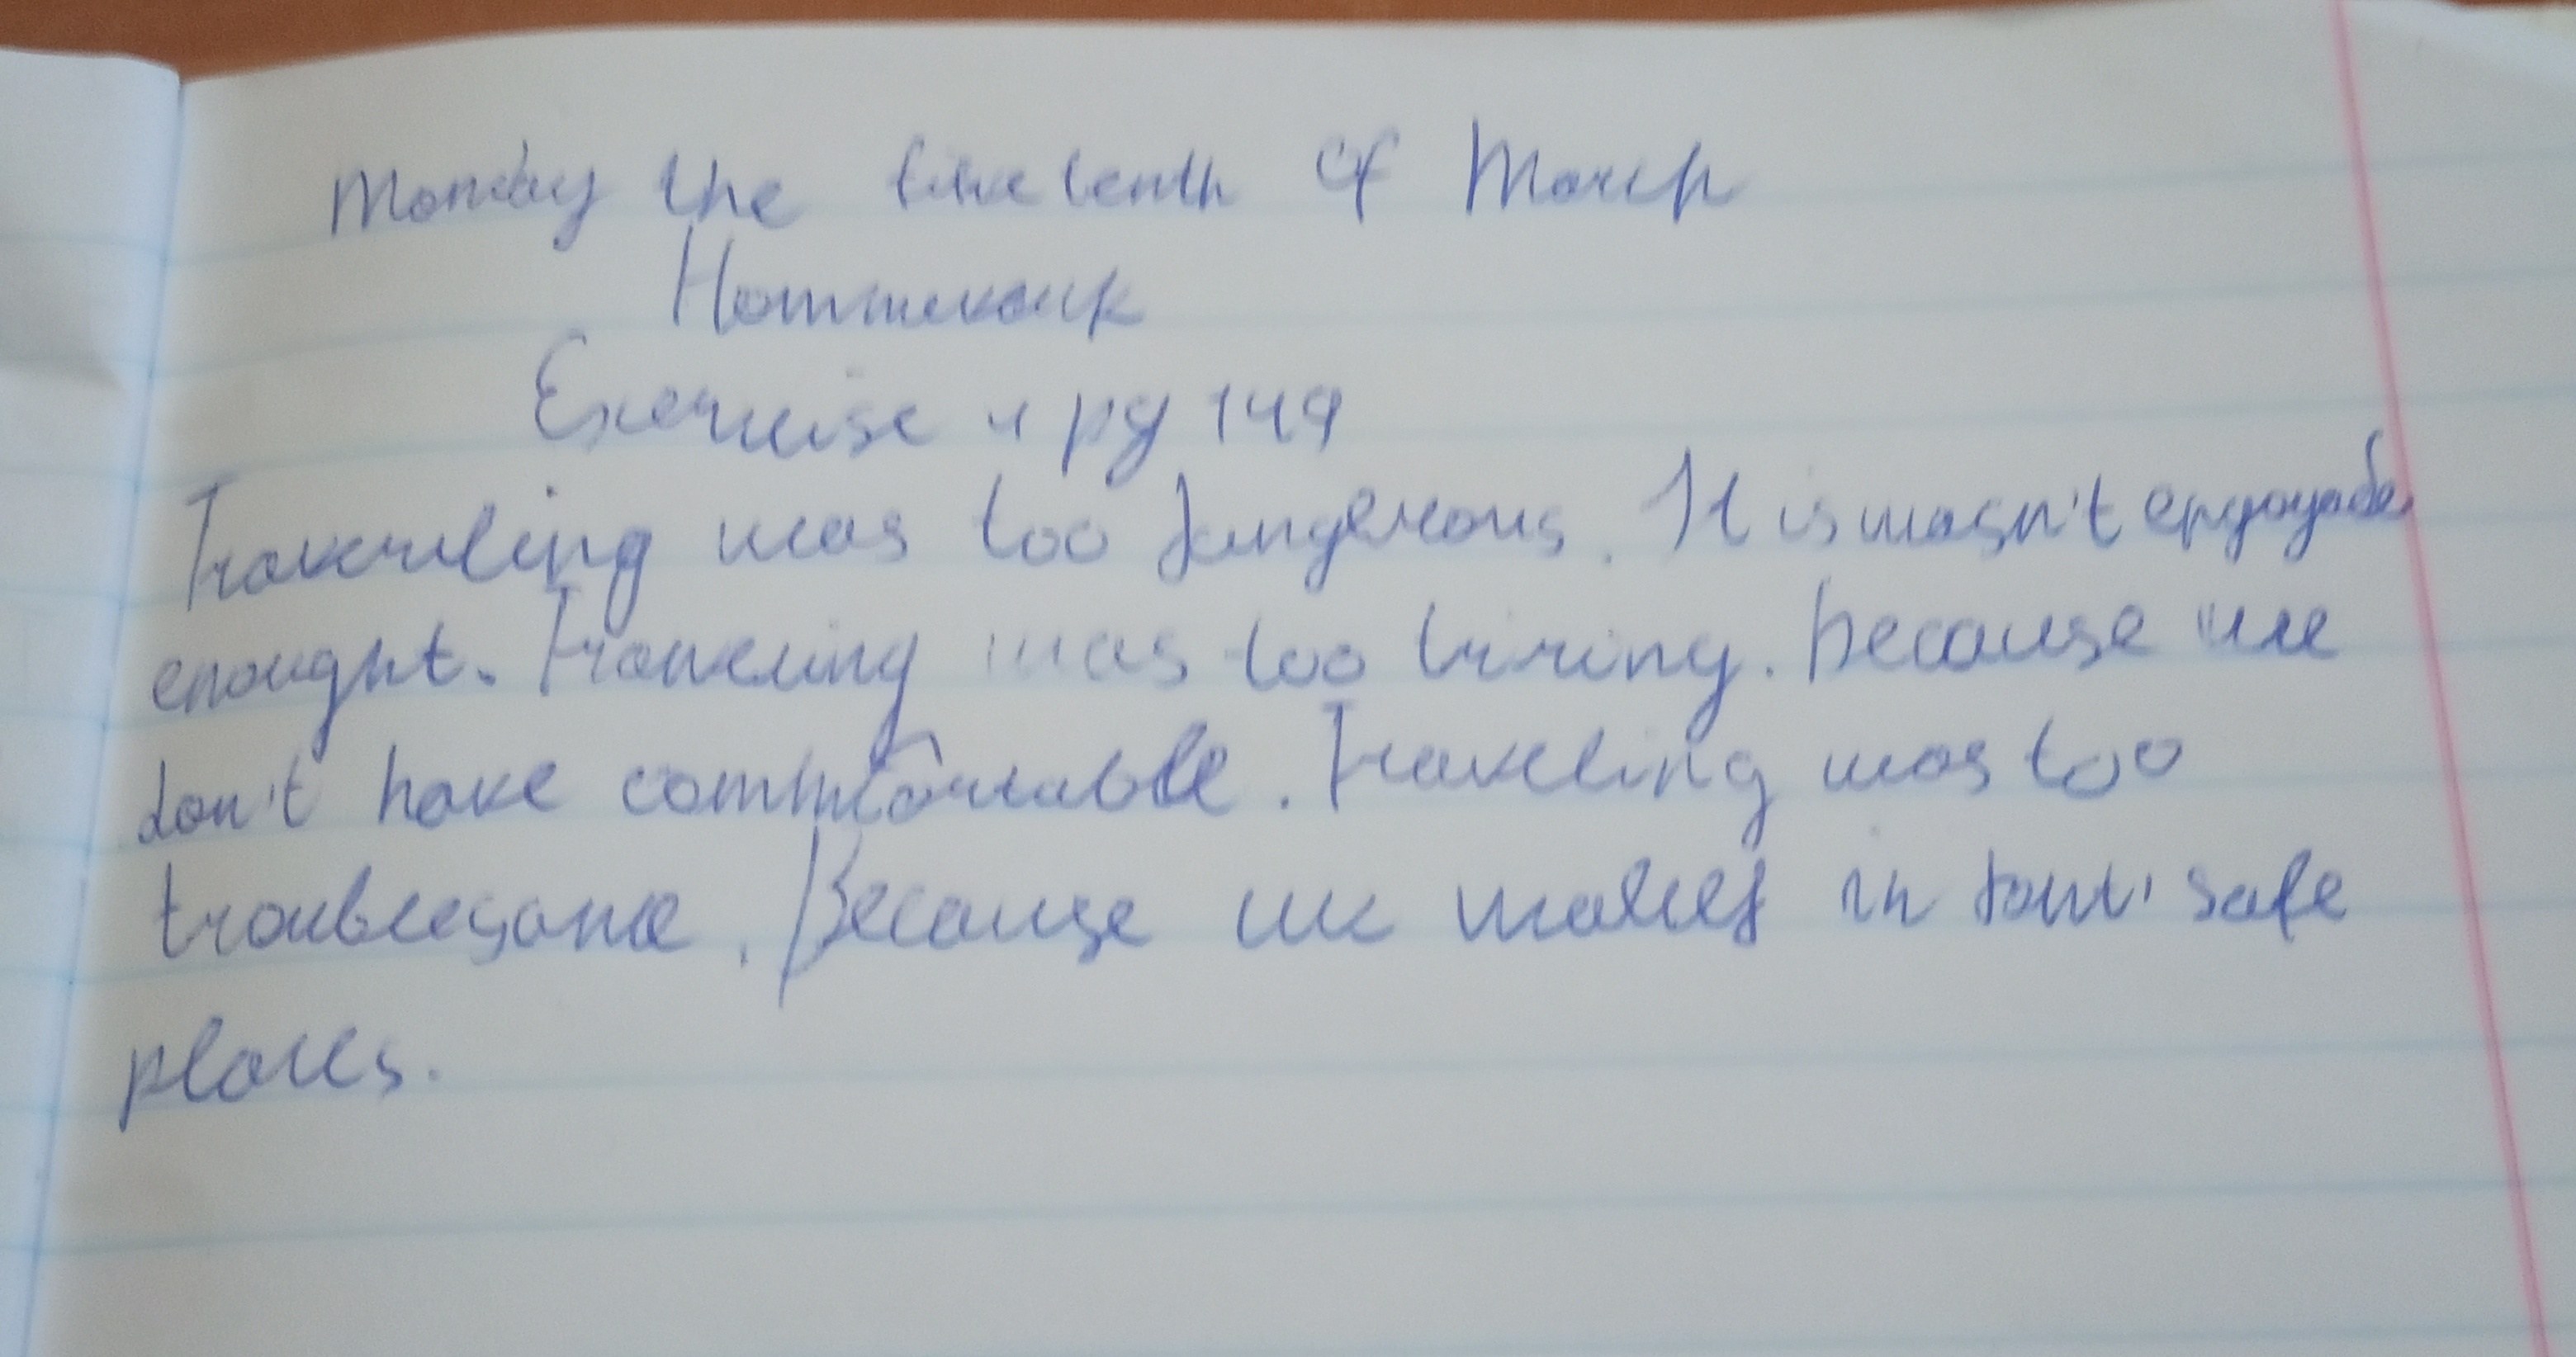 Monday the of March
Hommework
Exercise 4 pg 149
Traverling was too dangerous. It is wasn't engoyable
enought. Traveling was too tiring. Because we
don't have commfortable. Traveling was too
troublesome. Because we in safe
places.